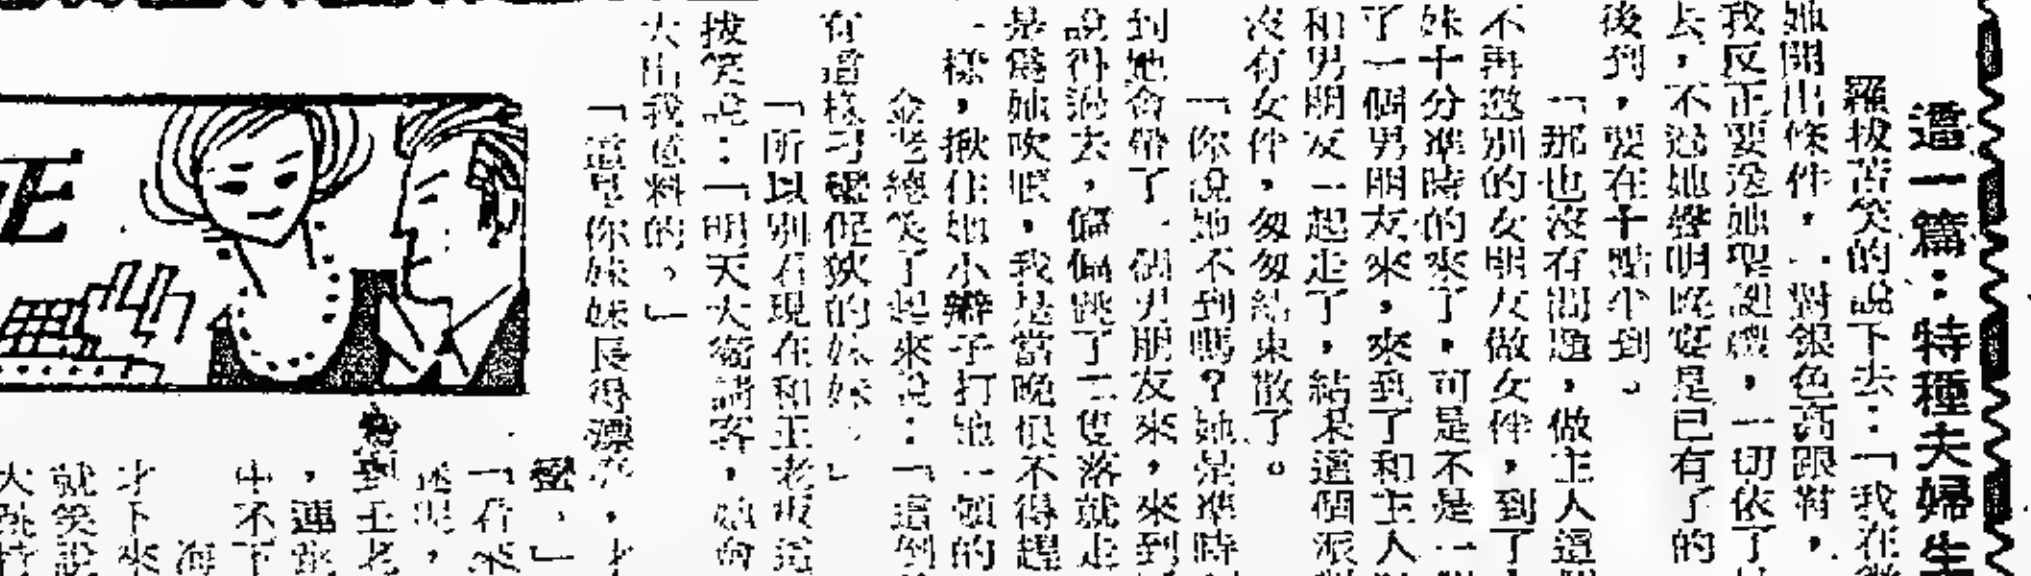 這一篇：特種夫婦生
羅拔苦笑的說下去：「我在
她開出條件，一對銀色高跟鞋，
我反正要送她聖誕禮，一切依了
去，不過她聲明晚宴是已有了的
後到，要在十點半到。
「那也沒有問題，做主人這
不再邀別的女朋友做女伴，到了
妹十分準時的來了，可是不是一
了一個男朋友來，來到了和主人
和男朋友一起走了，結果這個派
沒有女伴，匆匆結束散了。
「你說她不到嗎？她是準時
到她會帶了一個男朋友來，來到
說得過去，偏偏跳了二隻落就走
是為她吹脹，我是當晚恨不得趕
一樣，揪住她小辮子打她一頓的
金老總笑了起來說：「這倒
有這樣刁蠻促狹的妹妹。」
「所以別看現在和王老板這
拔笑說：「明天大衛請客，她會
大出我意料的。」
「這是你妹妹長得漂亮，才
E
蠻，」
「看來
透明，
到王老
，連
中不下
海
才下來
就笑說
大